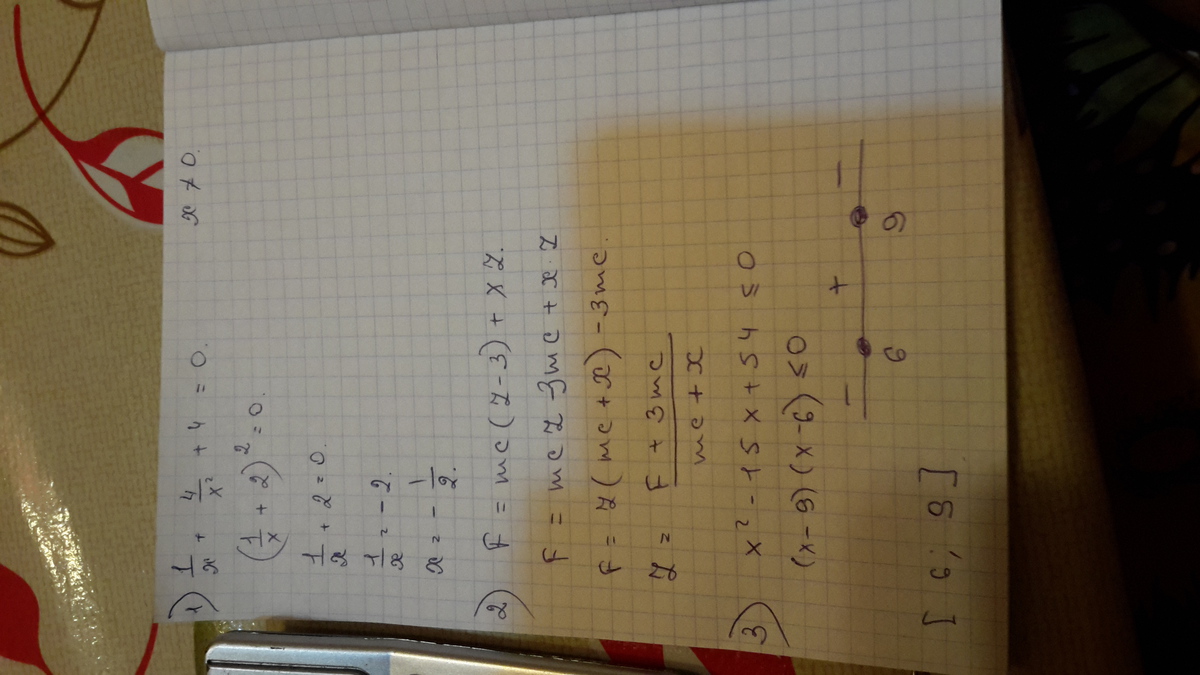 1) 1/x + 4/x² + 4 = 0. x ≠ 0.
(1/x + 2)² = 0.
1/x + 2 = 0.
1/x = -2.
x = -1/2.
2) F = mc(z-3) + xz.
F = mcz - 3mc + x·z
F = z(mc + x) - 3mc.
z = (F + 3mc)/(mc + x)
3) x² - 15x + 54 ≤ 0
(x-9)(x-6) ≤ 0
- + -
6 9
[6; 9]